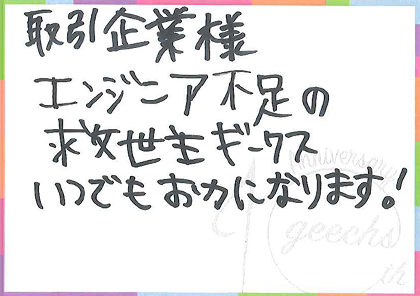 取引企業様
エンジニア不足の
救世主ギークス
いつでもお力になります!
Anniversary
geechs
th